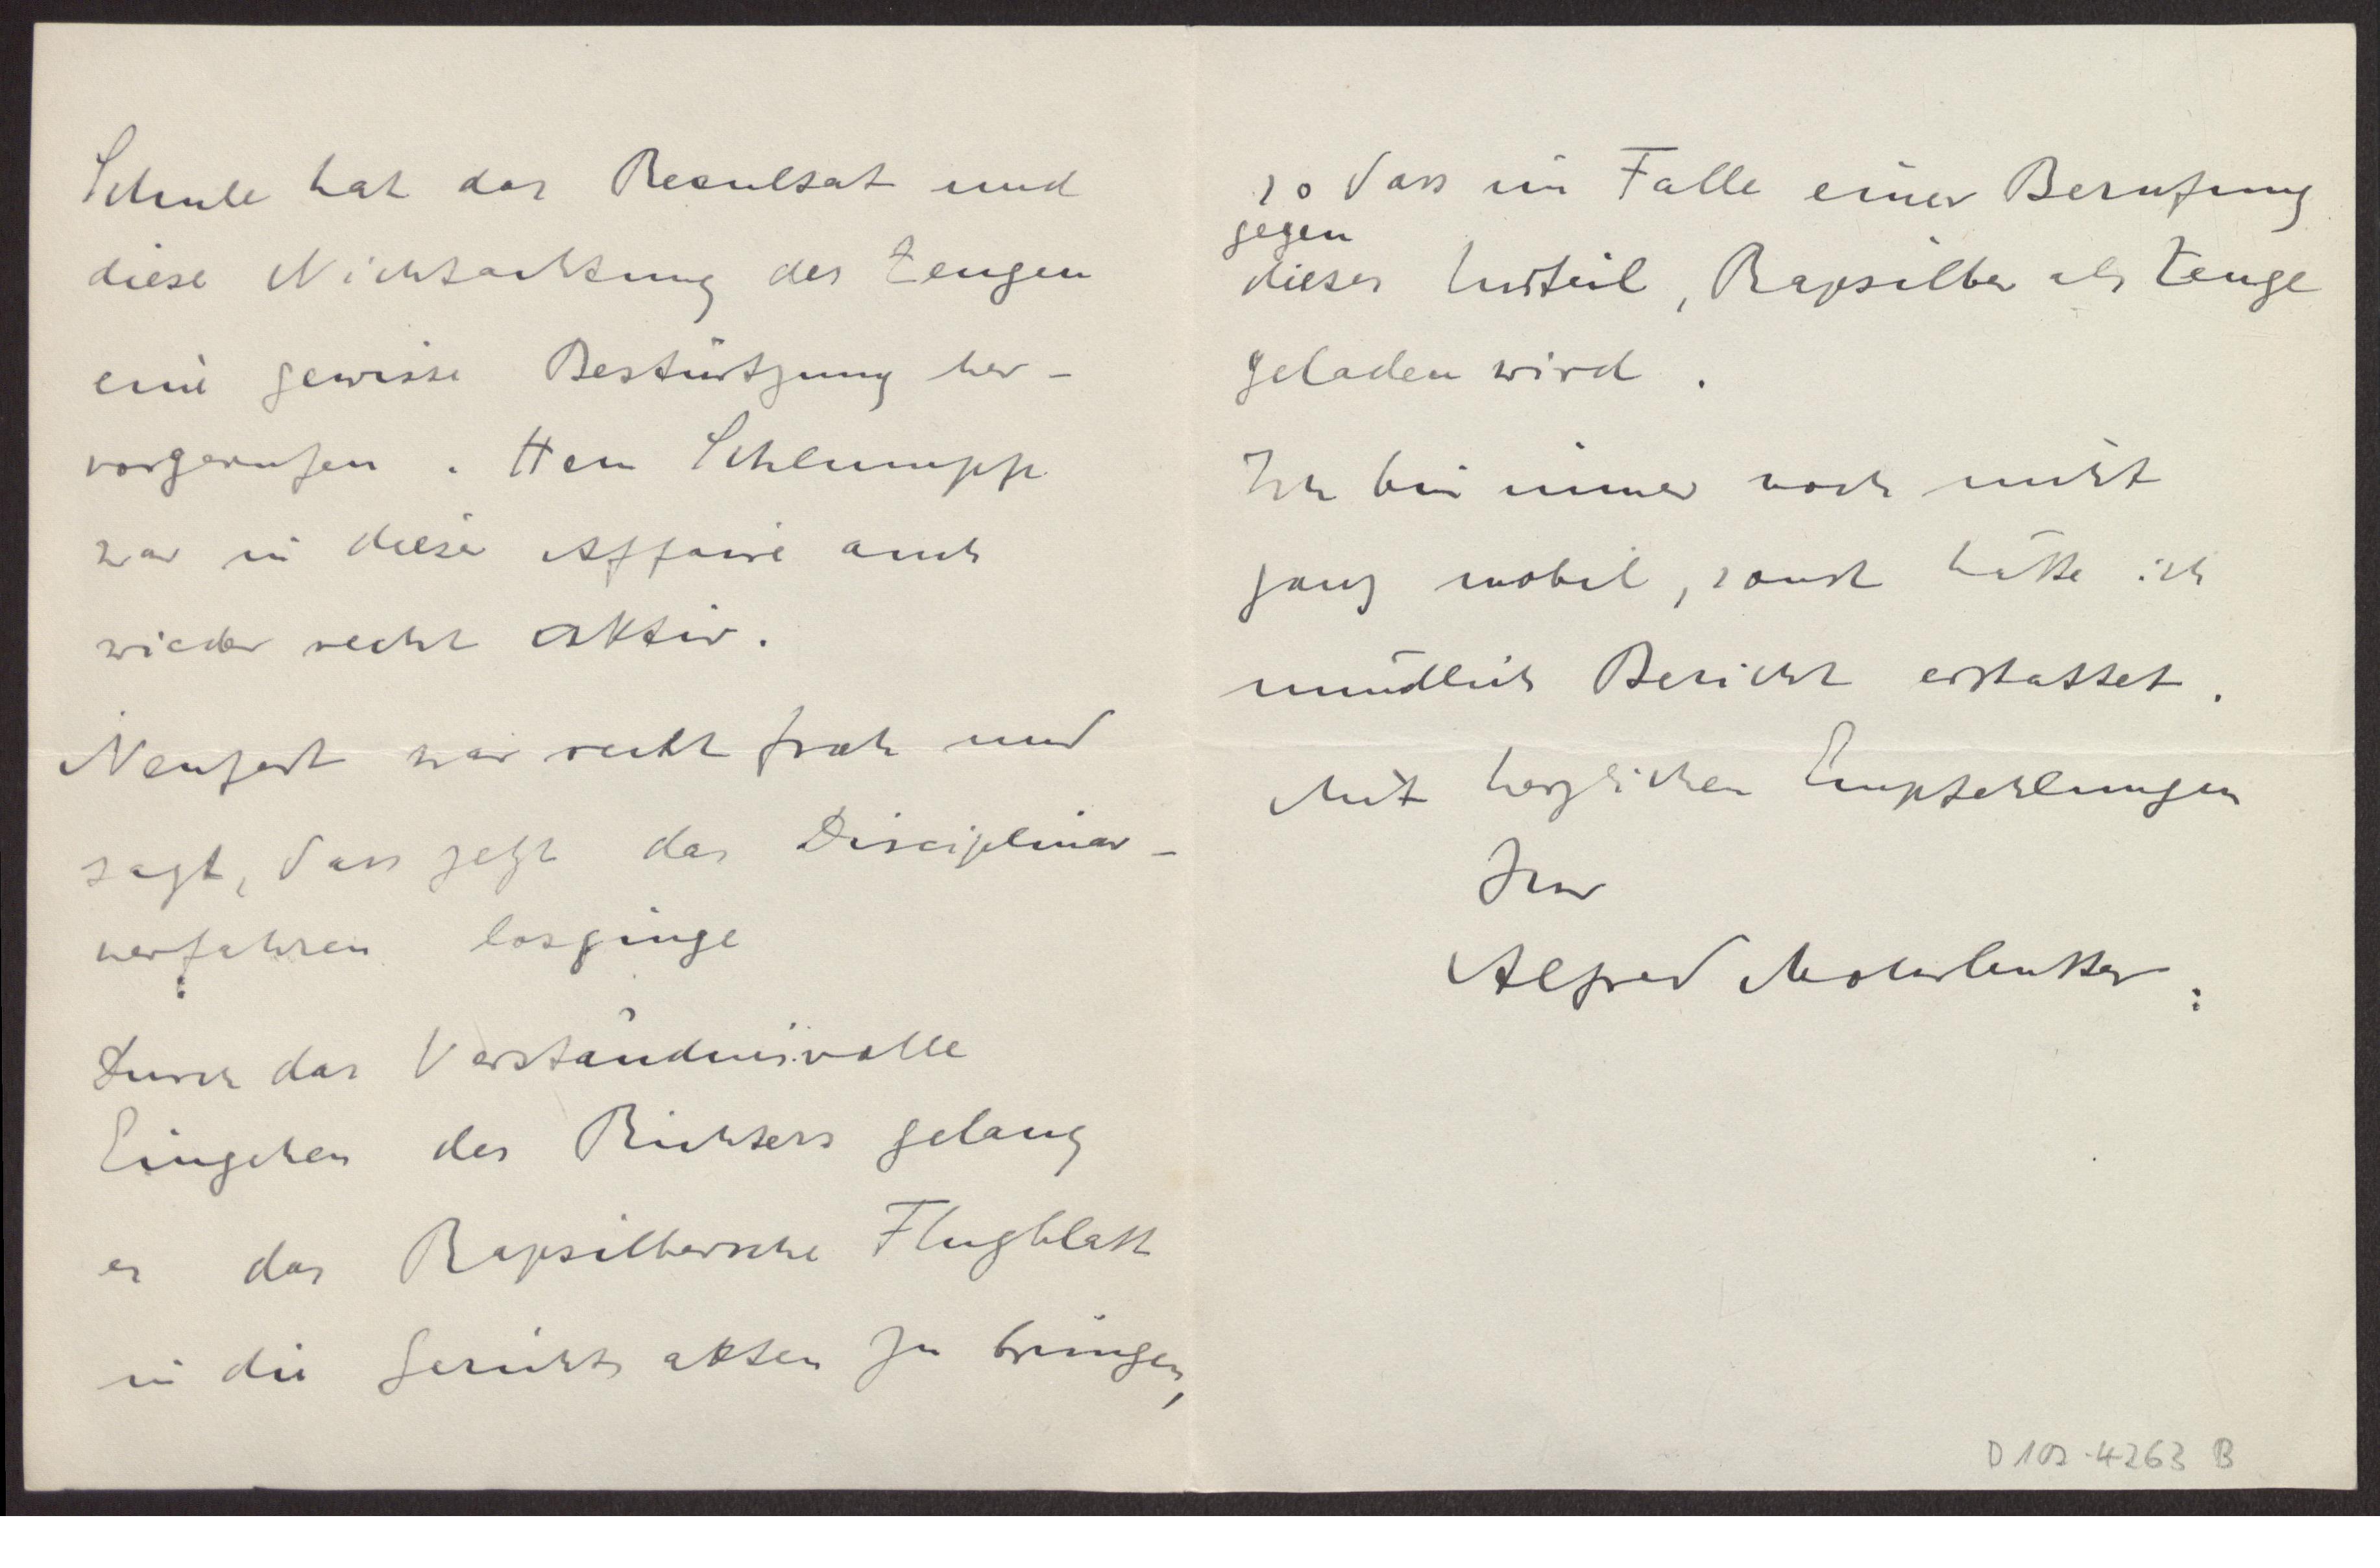 Schule hat das Resultat und
diese Nichtachtung des Zeugen
eine gewisse Bestürtzung her-
vorgerufen. Herr Schlumpp
war in dieser Affaire auch
wieder recht aktiv.
Neufert war recht froh und
sagt, dass jetzt das Disciplinar-
verfahren losginge
Durch das Verständnisvolle
Eingehen des Richters gelang
es das Rapsilbersche Flugblatt
in die Gerichtsakten zu bringen,
so dass im Falle einer Berufung
gegen
dieses Urteil, Rapsilber als Zeuge
geladen wird.
Ich bin immer noch nicht
ganz mobil, sonst hätte ich
mündlich Bericht erstattet.
Mit herzlichen Empfehlungen
Ihr
Alfred Mohrbutter:
D 102-4263 B